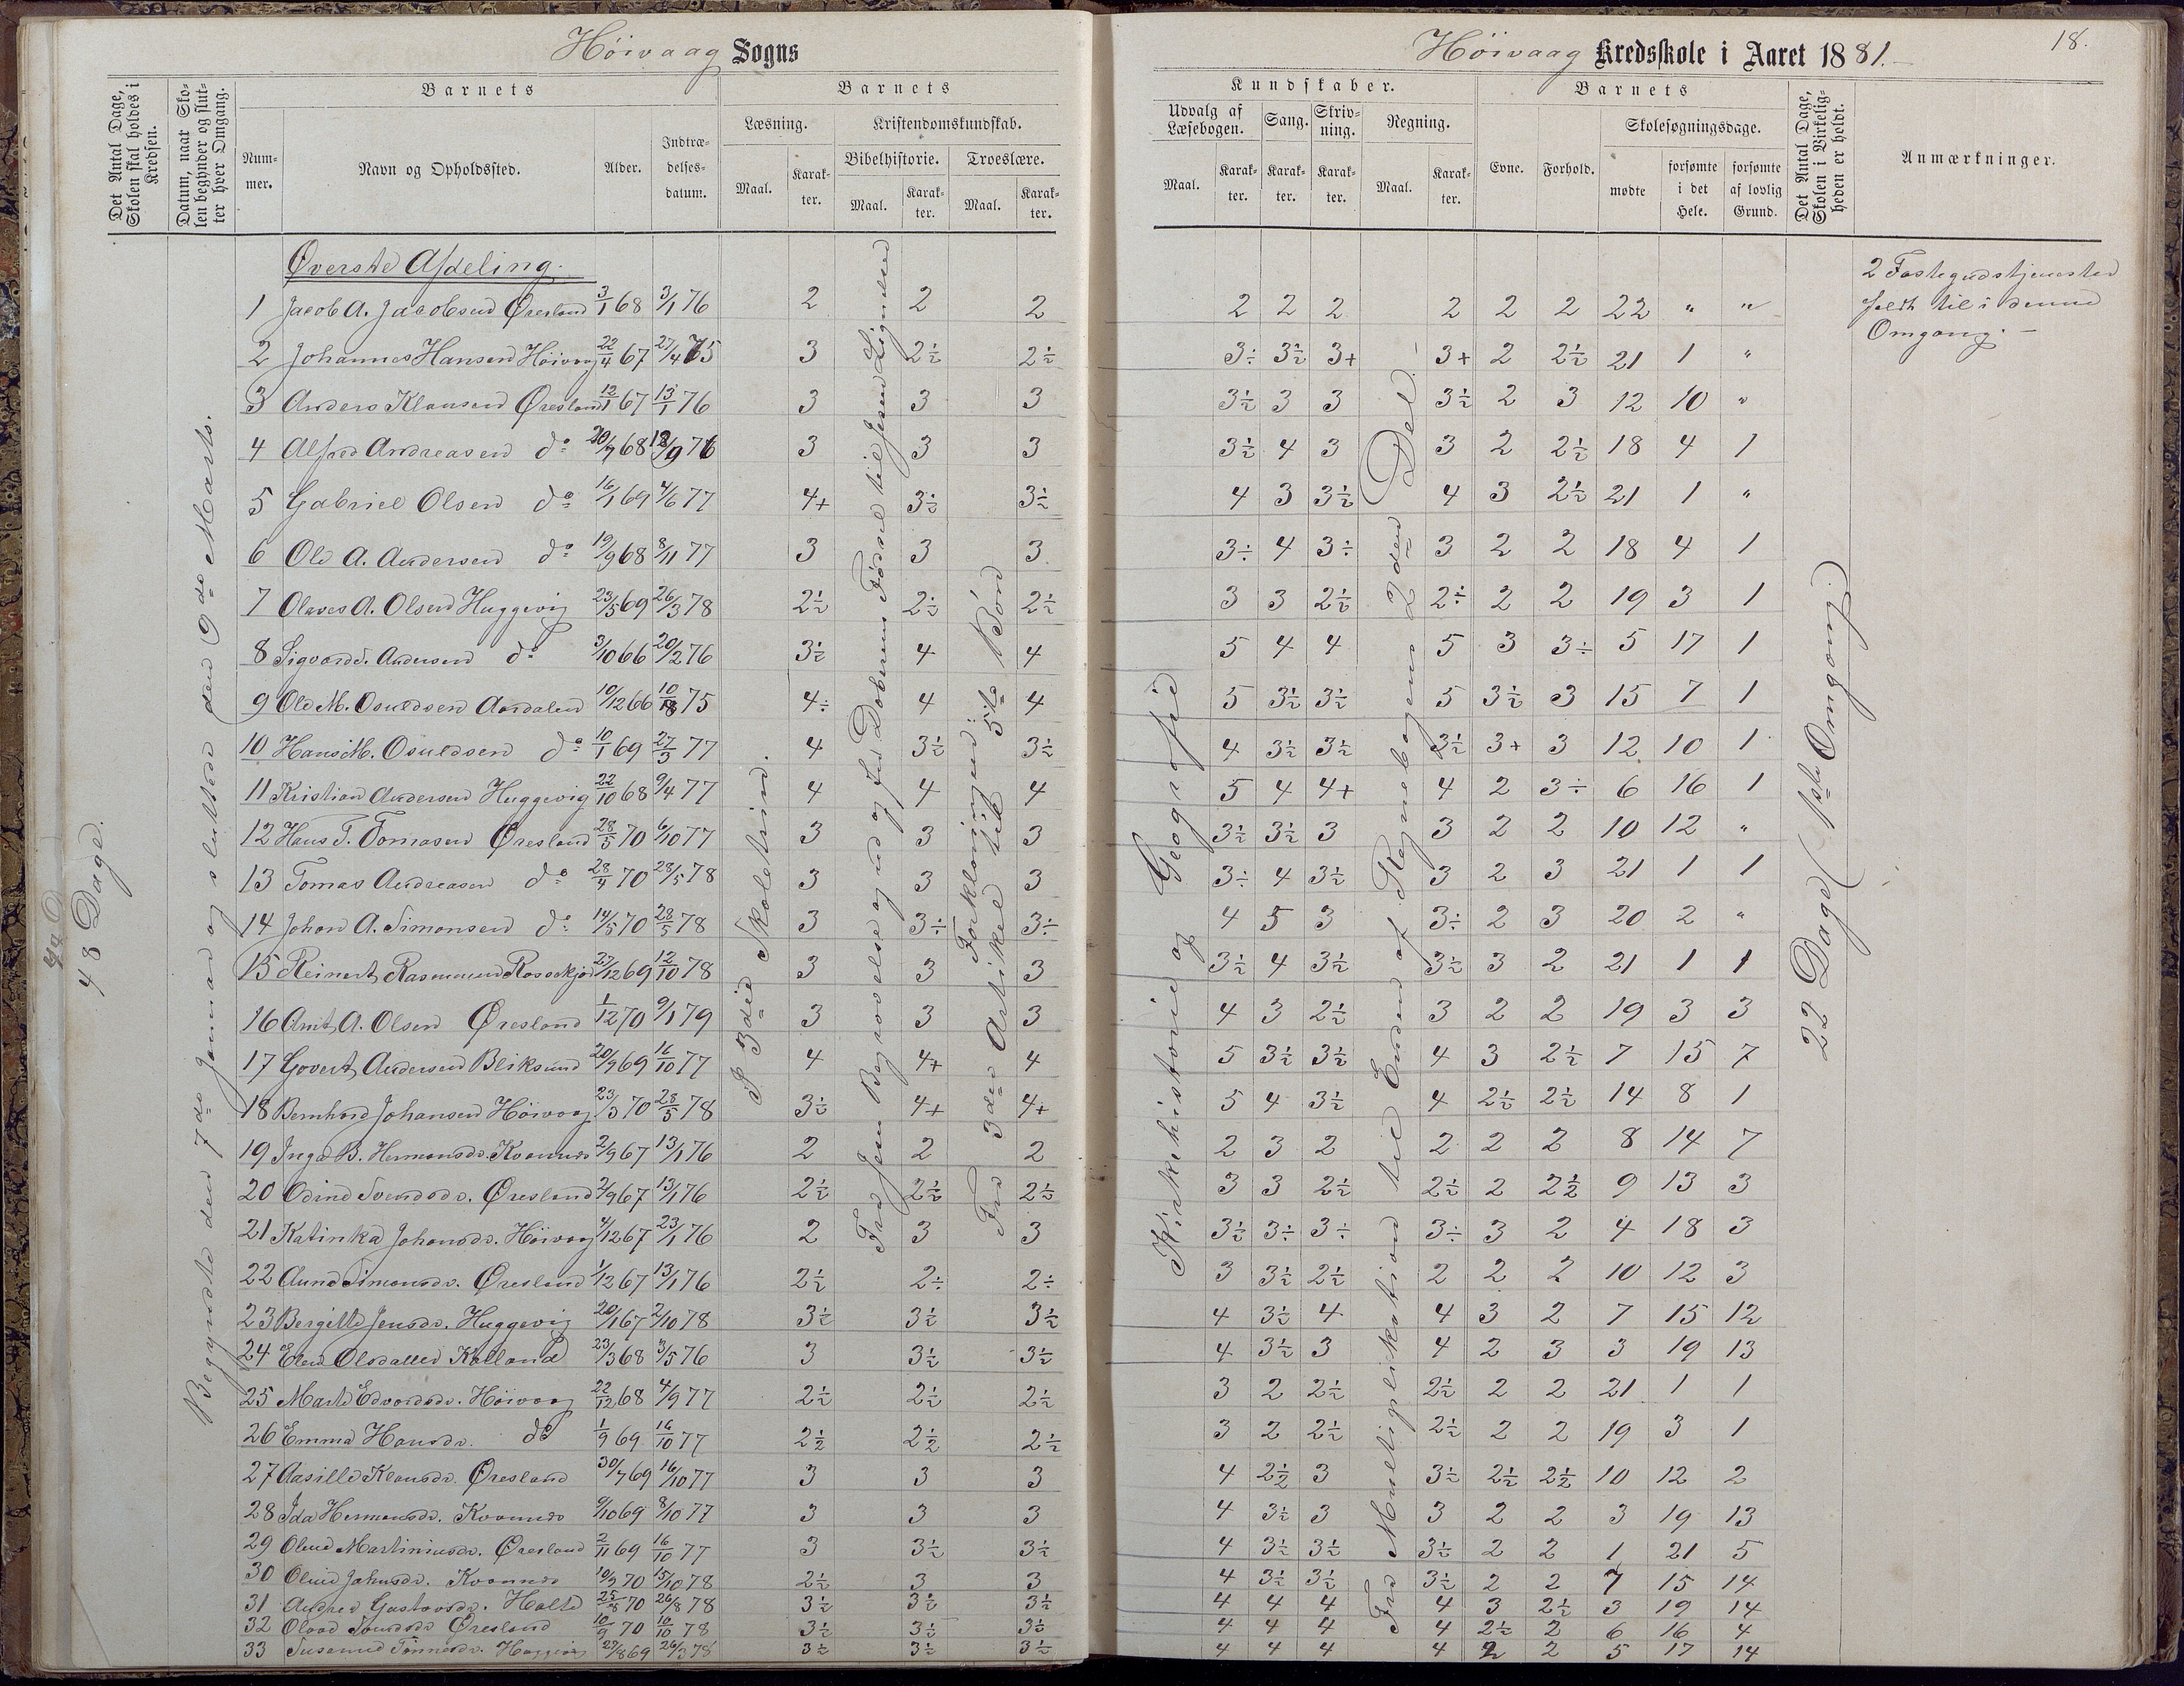 Höivaag Sogns
Det Antal Dage, Skolen skal holdes i Kredsen.
Datum, naar Skolen begynder og slutter hver Omgang.
Barnets
Nummer.
Navn og Opholdssted.
Alder.
Indtrædelsesdatum.
Barnets
Læsning.
Maal.
Karakter.
Kristendomskundskab.
Bibelhistorie.
Maal.
Karakter.
Troeslære.
Maal.
Karakter.
48 Dage.
Begyndte den 7de Januar og sluttede den 9de Marts.
P. 3die Skoletrin.
Fra Jesu Begravelse og ned og fra Doberens Fødsel til Jesu Lignelser
Forklaringen:
Fra 3die Artikel til 5te Bøn
Øverste Afdeling.
1 Jacob A. Jacobsen Øresland 3/1 68 3/1 76 2 2 2
2 Johannes Hansen Höivaag 22/4 67 27/4 75 3 2½ 2½
3 Anders Klausen Øresland 12/1 67 13/1 76 3 3 3
4 Alfred Andreasen do 20/7 68 18/9 76 3 3 3
5 Gabriel Olsen do 16/1 69 4/6 77 4+ 3½ 3½
6 Ole A. Andersen do 19/9 68 8/11 77 3 3 3
7 Olaves A. Olsen Huggevig 23/5 69 26/3 78 2½ 2½ 2½
8 Sigvard Andersen do 3/10 66 20/2 76 3½ 4 4
9 Ole M. Osuldsen Aardalen 10/12 66 75 4÷ 4 4
10 Hans M. Osuldsen do 10/1 69 27/3 77 4 3½ 3½
11 Kristian Andersen Huggevig 22/10 68 9/4 77 4 4 4
12 Hans T. Tomasen Øresland 28/5 70 6/10 77 3 3 3
13 Tomas Andreasen do 28/4 70 28/5 78 3 3 3
14 Johan A. Simonsen do 14/5 70 28/5 78 3 3÷ 3÷
15 Reinert Rasmussen 27/12 69 12/10 78 3 3 3
16 Amt A. Olsen Øresland 1/12 70 9/1 79 3 3 3
17 Govert Andersen Bliksund 20/9 69 16/10 77 4 4+ 4
18 Bernhard Johansen Höivaag 23/3 70 28/5 78 3½ 4+ 4+
19 Inga B. Hermansdr. Kvannes 2/9 67 13/1 76 2 2 2
20 Odine Svendsdr. Øresland 2/9 67 13/1 76 2½ 2½ 2½
21 Katinka Johansdr. Höivaag 4/12 67 23/1 76 2 3 3
22 Aune Simonsdr. Øresland 1/12 67 13/1 76 2½ 2÷ 2÷
23 Bergitte Jensdr. Huggevig 20/1 67 2/10 78 3½ 3½ 3½
24 Elen Olsdatter Kalland 23/3 68 3/5 76 3 3½ 3½
25 Marte Edvardsdr. Höivaag 22/12 68 4/9 77 2½ 2½ 2½
26 Emma Hansdr. do 1/9 69 16/10 77 2½ 2½ 2½
27 Aasille Klausdr. Øresland 30/7 69 16/10 77 3 3 3
28 Ida Hermansdr. Kvannes 9/10 69 8/10 77 3 3 3
29 Oline Martiniusdr. Øresland 2/11 69 16/10 77 3 3½ 3½
30 Oline Jahnsdr. Kvannes 10/9 70 15/10 78 2½ 3 3
31 Andrea Gustavsdr. Holte 25/8 70 26/8 78 3½ 3½ 3½
32 Olava Svendsdr Øresland 10/9 70 10/10 78 3½ 3½ 3½
33 Susanne Tönnesdr. Huggevig 27/8 69 26/3 78 3½ 3½ 3½
Höivaag Kredsskole i Aaret 1881.
18.
Kundskaber.
Udvalg af Læsebogen.
Maal.
Karakter.
Sang.
Karakter.
Skrivning.
Karakter.
Regning.
Maal.
Karakter.
Barnets
Evne.
Forhold.
Skolesøgningsdage.
mødte
forsømte i det Hele.
forsømte af lovlig Grund.
Det Antal Dage, Skolen i Virkeligheden er holdt.
Anmærkninger.
Kirkehistorie og Geografie
Fra Multiplikation til Enden af Regnebogens 2den Del.
22 Dage (1ste Omgang.)
2 Fastegudstjenester
faldt til i denne
Omgang. –
2 2 2 2 2 2 22 " "
3÷ 3½ 3+ 3+ 2 2½ 21 1 "
3½ 3 3 3½ 2 3 12 10 "
3½ 4 3 3 2 2½ 18 4 1
4 3 3½ 4 3 2½ 21 1 "
3÷ 4 3÷ 3 2 2 18 4 1
3 3 2½ 2÷ 2 2 19 3 1
5 4 4 5 3 3÷ 5 17 1
5 3½ 3½ 5 3½ 3 15 7 1
4 3½ 3½ 3½ 3+ 3 12 10 1
5 4 4+ 4 2 3÷ 6 16 1
3½ 3½ 3 3 2 2 10 12 "
3÷ 4 3½ 3 2 3 21 1 1
4 5 3 3÷ 2 3 20 2 "
3½ 4 3½ 3½ 3 2 21 1 1
4 3 2½ 3 2 2 19 3 3
5 3½ 3½ 4 3 2½ 7 15 7
5 4 3½ 4 2½ 2½ 14 8 1
2 3 2 2 2 2 8 14 7
3 3 2½ 2½ 2 2½ 9 13 3
3½ 3÷ 3÷ 3÷ 3 2 4 18 3
3 3½ 2½ 2 2 2 10 12 3
4 3½ 4 4 3 2 7 15 12
4 3½ 3 4 2 3 3 19 13
3 2 2½ 2½ 2 2 21 1 1
3 2 2½ 2½ 2 2 19 3 1
4 2½ 3 3½ 2½ 2½ 10 12 2
4 3½ 3 3 2 2 3 19 13
4 3½ 3½ 3½ 2 2 1 21 5
4 3½ 3½ 3½ 2 2 7 15 14
4 4 4 4 3 2½ 3 19 14
4 4 4 4 2½ 2 6 16 4
4 4 4 4 2 2 5 17 14